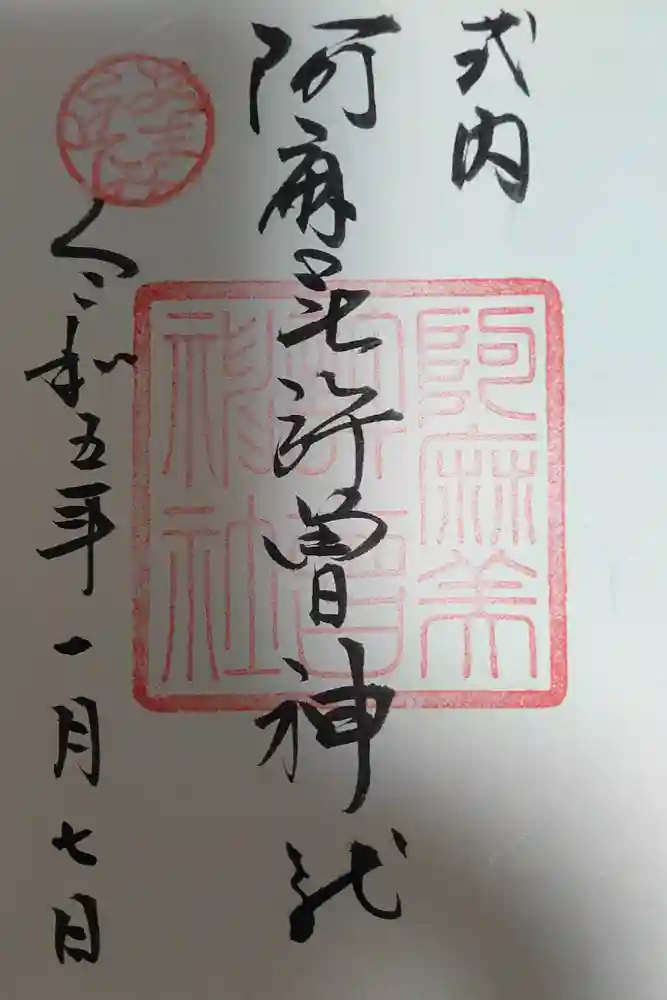 式内
阿麻美許曽神社
令和五年一月七日
阿麻美
許曽
神社